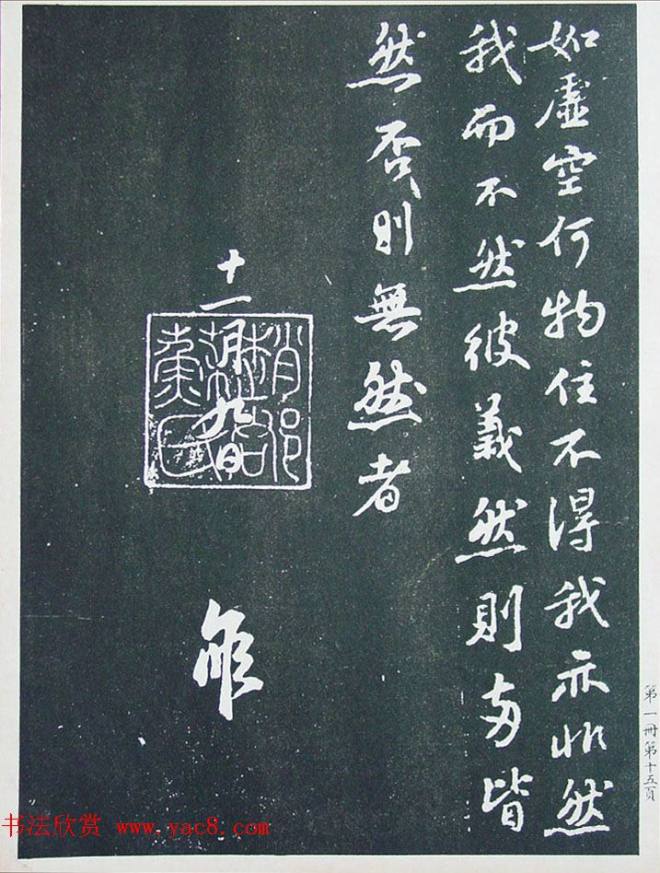 如虛空何物住不得我亦非然
我而不然彼義然則兩皆
然否則無然者
十一月九日
第一冊第十五頁
书法欣赏 www.yac8.com